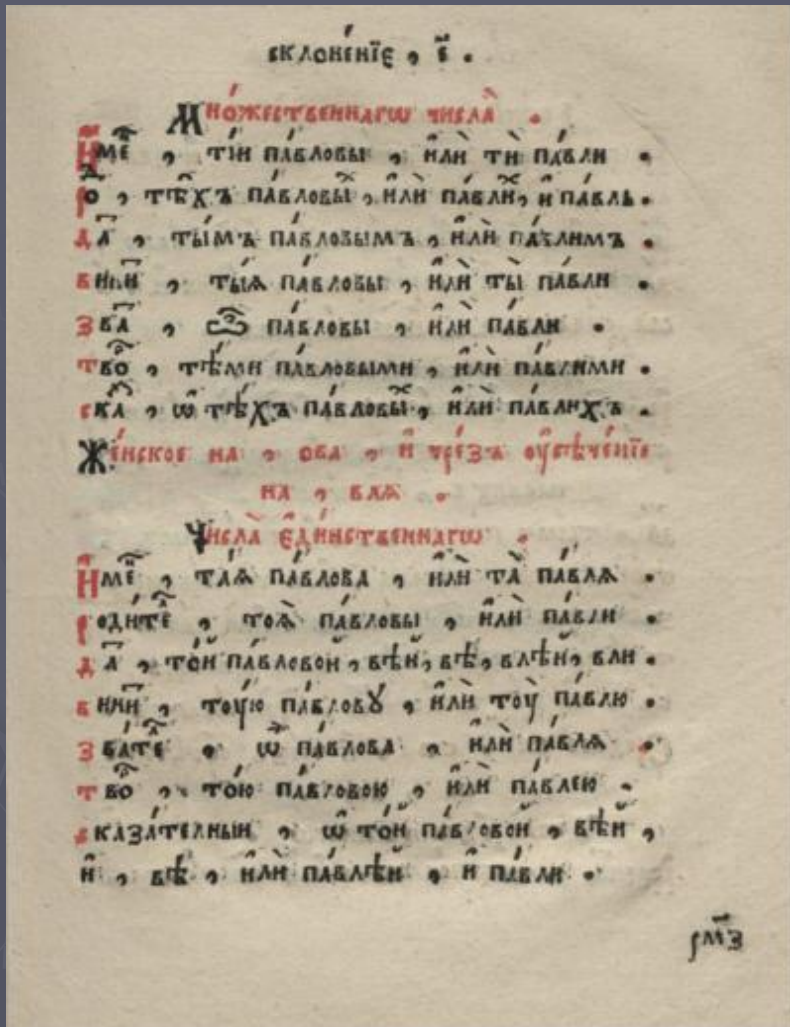 склоне́нїе , є҃ .
Мно́жественнагѡ числа̀ .
И҆меⷩ҇ , ті́и па́вловы , и҆лѝ тѝ па́вли .
роⷣ , тѣ́хъ па́вловыⷯ , и҆лѝ па́влиⷯ , и҆ па́вль .
даⷮ , ты́мъ па́вловымъ , и҆лѝ па́влимъ .
виниⷮ , ты́ѧ па́вловы , и҆лѝ ты̀ па́вли .
зваⷮ , ѽ па́вловы , и҆лѝ па́вли .
твоⷬ , тѣ́ми па́вловыми , и҆лѝ па́влими .
скаⷥ , ѡ҆ тѣ́хъ па́вловыⷯ , и҆лѝ па́влихъ .
Же́нское на , ова , и҆ тре́зъ ᲂу҆сѣче́нїе
на , влѧ .
Числа̀ є҆ди́нственнагѡ .
И҆меⷩ҇ , та́ѧ па́влова , и҆лѝ та̀ па́влѧ .
роди́теⷧ , тоѧ̀ па́вловы , и҆лѝ па́вли .
даⷮ , то́й па́вловой , вѣй , вѣ , влѣй , вли .
виниⷮ , тꙋ́ю па́вловꙋ , и҆лѝ тꙋ̀ па́влю .
зва́теⷧ , ѽ па́влова , и҆лѝ па́влѧ .
твоⷬ , то́ю па́вловою , и҆лѝ па́влею .
сказа́телный , ѡ҆ то́й па́вловой , вѣй ,
и҆ , вѣ , и҆лѝ па́влѣй , и҆ па́вли .
рм҃з